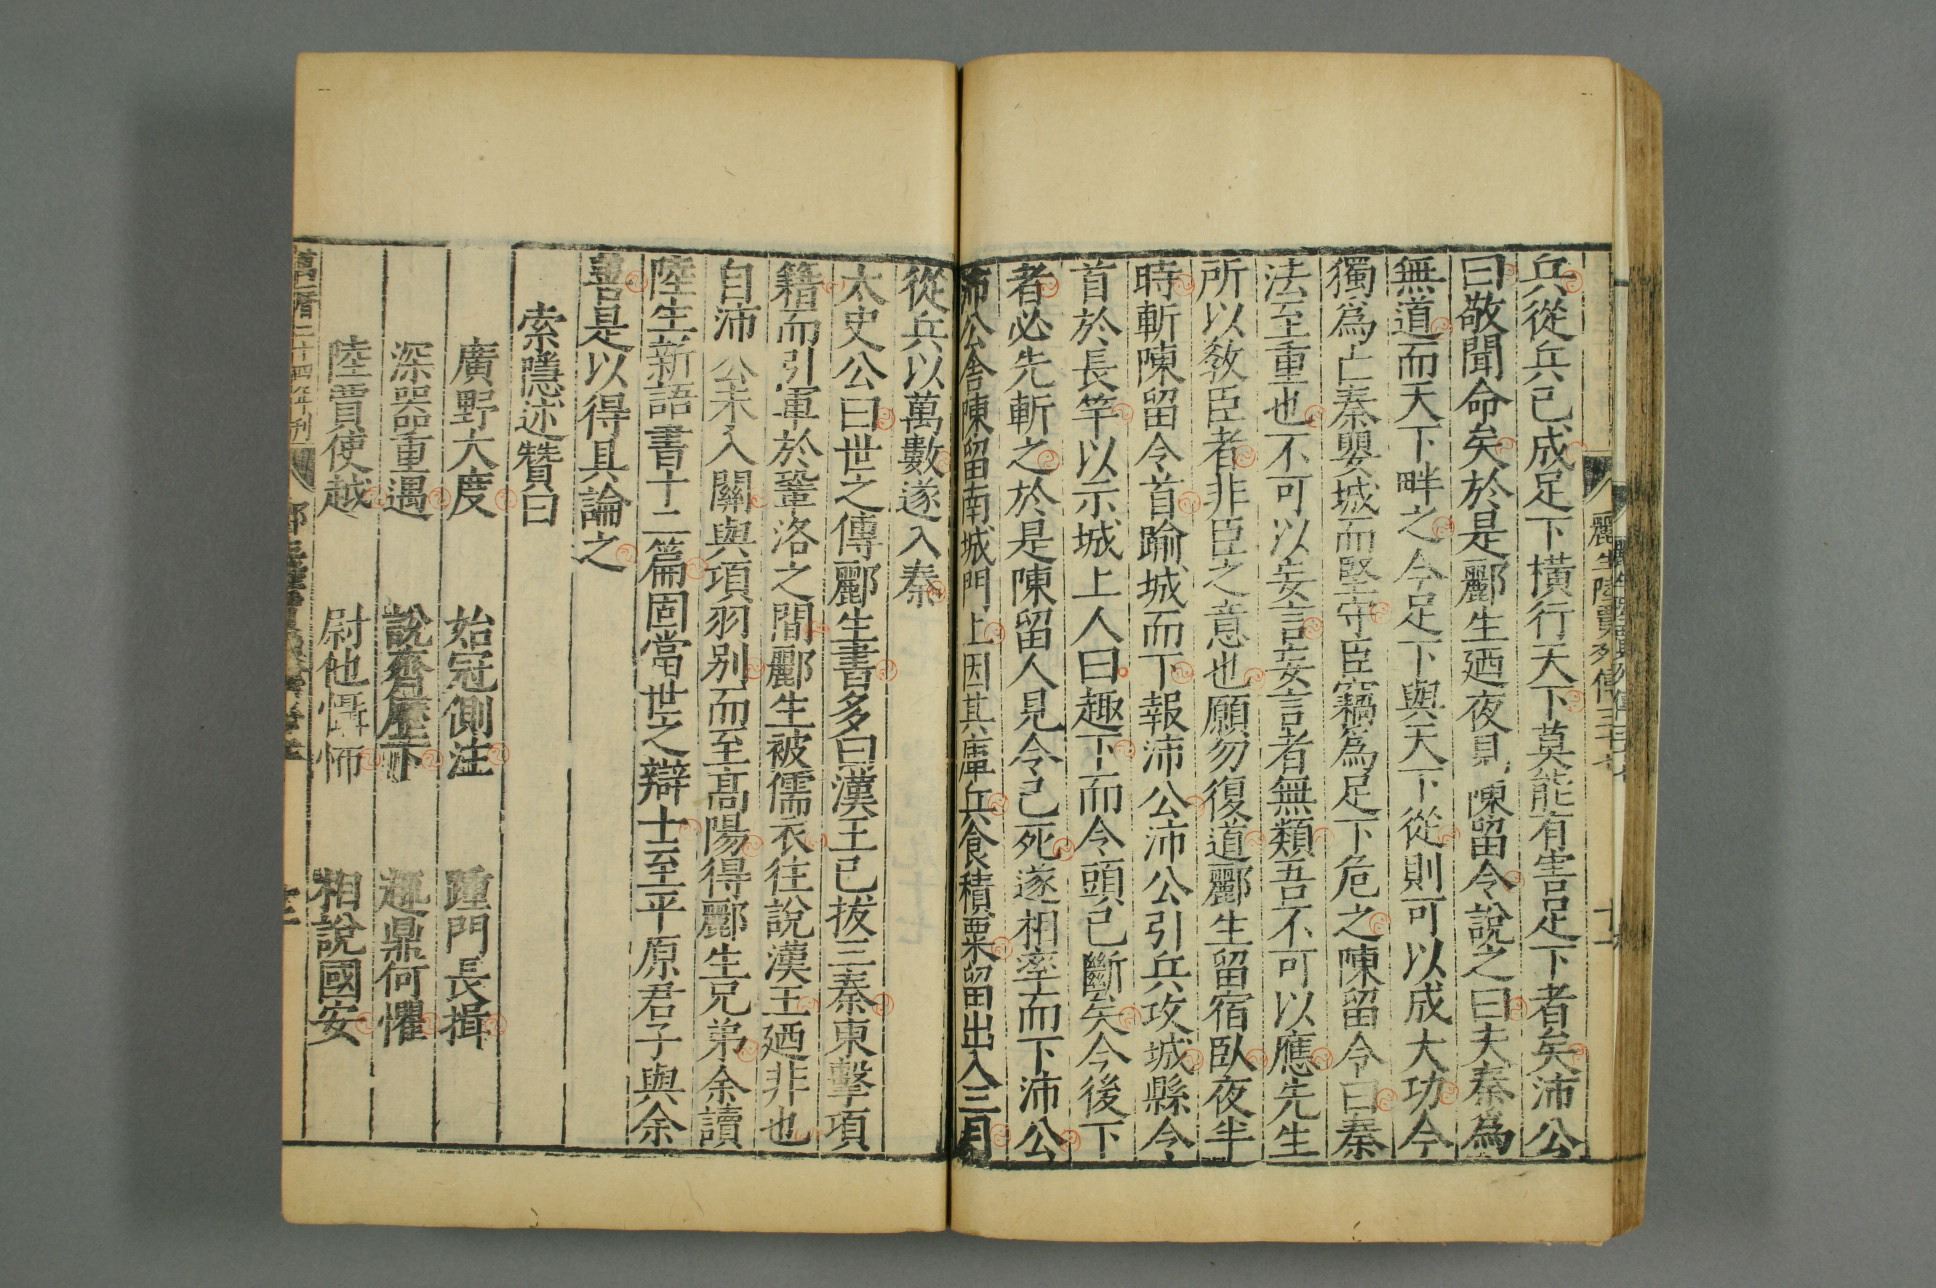 酈生陸賈列傳三十七
十一
兵從兵已成足下橫行天下莫能有害足下者矣沛公
曰敬聞命矣於是酈生廼夜見陳留令說之曰夫秦爲
無道而天下畔之今足下與天下從則可以成大功今
獨爲亡秦嬰城而堅守臣竊爲足下危之陳留令曰秦
法至重也不可以妄言妄言者無類吾不可以應先生
所以教臣者非臣之意也願勿復道酈生留宿臥夜半
時斬陳留令首踰城而下報沛公沛公引兵攻城縣令
首於長竿以示城上人曰趣下而令頭已斷矣今後下
者必先斬之於是陳留人見令已死遂相率而下沛公
沛公舍陳留南城門上因其庫兵食積粟留出入三月
從兵以萬數遂入秦
太史公曰世之傳酈生書多曰漢王已拔三秦東擊項
籍而引軍於鞏洛之間酈生被儒衣往說漢王廼非也
自沛公未入關與項羽别而至高陽得酈生兄弟余讀
陸生新語書十二篇固當世之辯士至平原君子與余
善是以得具論之
索隱述贊曰
廣野大度 始冠側注 踵門長揖
深器重遇 說齊歷下 趣鼎何懼
陸賈使越 尉他懾怖 相說國安
萬曆二十四年刊